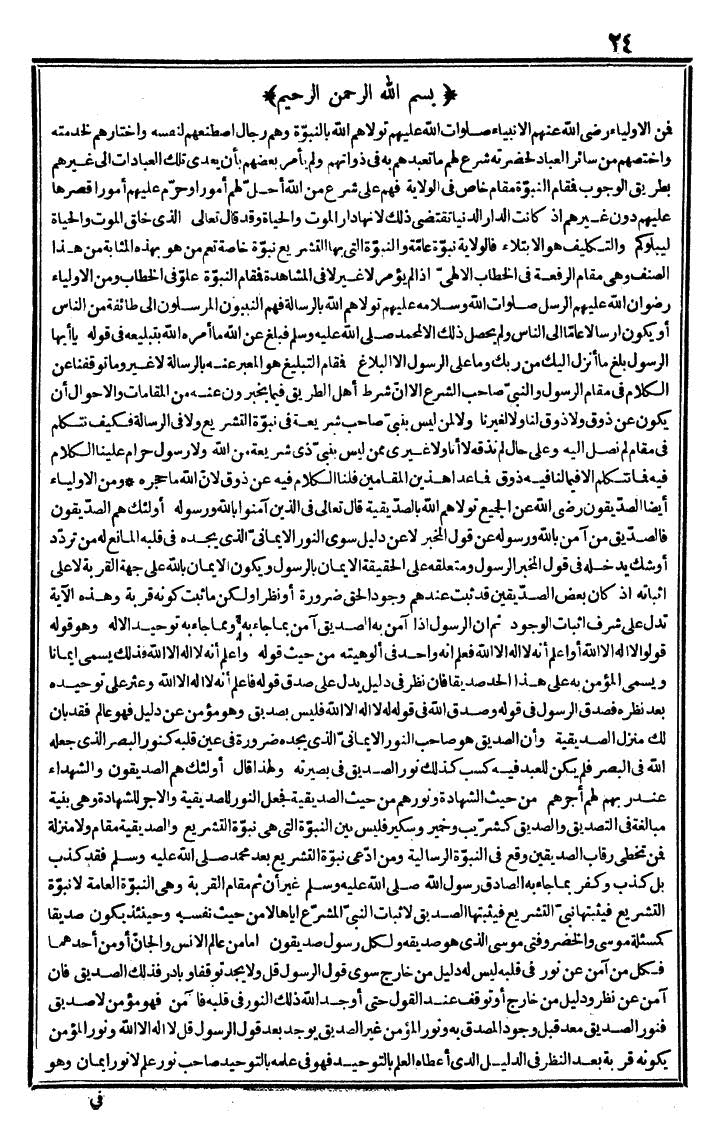 ٢٤
﴿ بسم الله الرحمن الرحيم ﴾
فمن الاولياء رضى الله عنهم الانبياء صلوات الله عليهم تولاهم الله بالنبوّة وهم رجال اصطنعهم لنفسه واختارهم لخدمته
واختصهم من سائر العباد لحضرته شرع لهم ما تعبدهم به فى ذواتهم ولم يأمر بعضهم بأن يعدى تلك العبادات الى غيرهم
بطريق الوجوب فمقام النبوّة مقام خاص فى الولاية فهم على شرع من الله أحلّ لهم أمورا وحرّم عليهم أمورا قصرها
عليهم دون غيرهم اذ كانت الدار الدنيا تقتضى ذلك لانها دار الموت والحياة وقد قال تعالى الذى خلق الموت والحياة
ليبلوكم والتكليف هو الابتلاء فالولاية نبوّة عامّة والنبوّة التى بها التشريع نبوّة خاصة تعم من هو بهذه المثابة من هذا
الصنف وهى مقام الرفعة فى الخطاب الالهىّ اذا لم يؤمر لا غير لا فى المشاهدة فمقام النبوّة علوّ فى الخطاب ومن الاولياء
رضوان الله عليهم الرسل صلوات الله وسلامه عليهم تولاهم الله بالرسالة فهم النبيون المرسلون الى طائفة من الناس
أو يكون ارسالا عامّا الى الناس ولم يحصل ذلك الا لمحمد صلى الله عليه وسلم فبلغ عن الله ما أمره الله بتبليغه فى قوله ياأيها
الرسول بلغ ما أنزل اليك من ربك وما على الرسول الا البلاغ فمقام التبليغ هو المعبر عنه بالرسالة لا غير وما توقفنا عن
الكلام فى مقام الرسول والنبىّ صاحب الشرع الا انّ شرط أهل الطريق فيما يخبرون عنه من المقامات والاحوال أن
يكون عن ذوق ولا ذوق لنا ولا لغيرنا ولا لمن ليس بنبىّ صاحب شريعة فى نبوّة التشريع ولا فى الرسالة فكيف نتكلم
فى مقام لم نصل اليه وعلى حال لم نذقه لا أنا ولا غيرى ممن ليس بنبىّ ذى شريعة من الله ولا رسول حرام علينا الكلام
فيه فما نتكلم الا فيما لنا فيه ذوق فما عدا هذين المقامين فلنا الكلام فيه عن ذوق لانّ الله ما حجره * ومن الاولياء
أيضا الصدّيقون رضى الله عن الجميع تولاهم الله بالصدّيقية قال تعالى فى الذين آمنوا بالله ورسوله أولئك هم الصدّيقون
فالصدّيق من آمن بالله ورسوله عن قول المخبر لا عن دليل سوى النور الايمانىّ الذى يجده فى قلبه المانع له من تردّد
أو شك يدخله فى قول المخبر الرسول ومتعلقه على الحقيقة الايمان بالرسول ويكون الايمان بالله على جهة القربة لا على
اثباته اذ كان بعض الصدّيقين قد ثبت عندهم وجود الحق ضرورة أو نظرا ولكن ما ثبت كونه قربة وهذه الآية
تدل على شرف اثبات الوجود ثم ان الرسول اذا آمن به الصديق آمن بما جاء به ومما جاء به توحيد الاله وهو قوله
قولوا لا اله الا الله أو اعلم أنه لا اله الا الله فعلم انه واحد فى ألوهيته من حيث قوله واعلم أنه لا اله الا الله فذلك يسمى ايمانا
ويسمى المؤمن به على هذا الحد صديقا فان نظر فى دليل يدل على صدق قوله فاعلم أنه لا اله الا الله وعثر على توحيده
بعد نظره فصدق الرسول فى قوله وصدق الله فى قوله له لا اله الا الله فليس بصديق وهو مؤمن عن دليل فهو عالم فقد بان
لك منزل الصديقية وأن الصديق هو صاحب النور الايمانىّ الذى يجده ضرورة فى عين قلبه كنور البصر الذى جعله
الله فى البصر فلم يكن للعبد فيه كسب كذلك نور الصديق فى بصيرته ولهذا قال أولئك هم الصديقون والشهداء
عند ربهم لهم أجرهم من حيث الشهادة ونورهم من حيث الصديقية فجعل النور للصديقية والاجر للشهادة وهى بنية
مبالغة فى التصديق والصديق كشرّيب وخمير وسكير فليس بين النبوّة التى هى نبوّة التشريع والصديقية مقام ولا منزلة
فمن تخطى رقاب الصديقين وقع فى النبوّة الرسالية ومن ادّعى نبوّة التشريع بعد محمد صلى الله عليه وسلم فقد كذب
بل كذب وكفر بما جاء به الصادق رسول الله صلى الله عليه وسلم غير أن ثم مقام القربة وهى النبوّة العامة لا نبوّة
التشريع فيثبتها نبىّ التشريع فيثبتها الصديق لاثبات النبىّ المشرّع اياها لا من حيث نفسه وحينئذ يكون صديقا
كمسئلة موسى والخضر وفتى موسى الذى هو صديقه ولكل رسول صديقون اما من عالم الانس والجانّ أو من أحدهما
فكل من آمن عن نور فى قلبه ليس له دليل من خارج سوى قول الرسول قل ولا يجد توقفا وبادر فذلك الصديق فان
آمن عن نظر ودليل من خارج أو توقف عند القول حتى أوجد الله ذلك النور فى قلبه فآمن فهو مؤمن لا صديق
فنور الصديق معد قبل وجود المصدق به ونور المؤمن غير الصديق يوجد بعد قول الرسول قل لا اله الا الله ونور المؤمن
بكونه قربة بعد النظر فى الدليل الذى أعطاه العلم بالتوحيد فهو فى علمه بالتوحيد صاحب نور علم لا نور ايمان وهو
فى